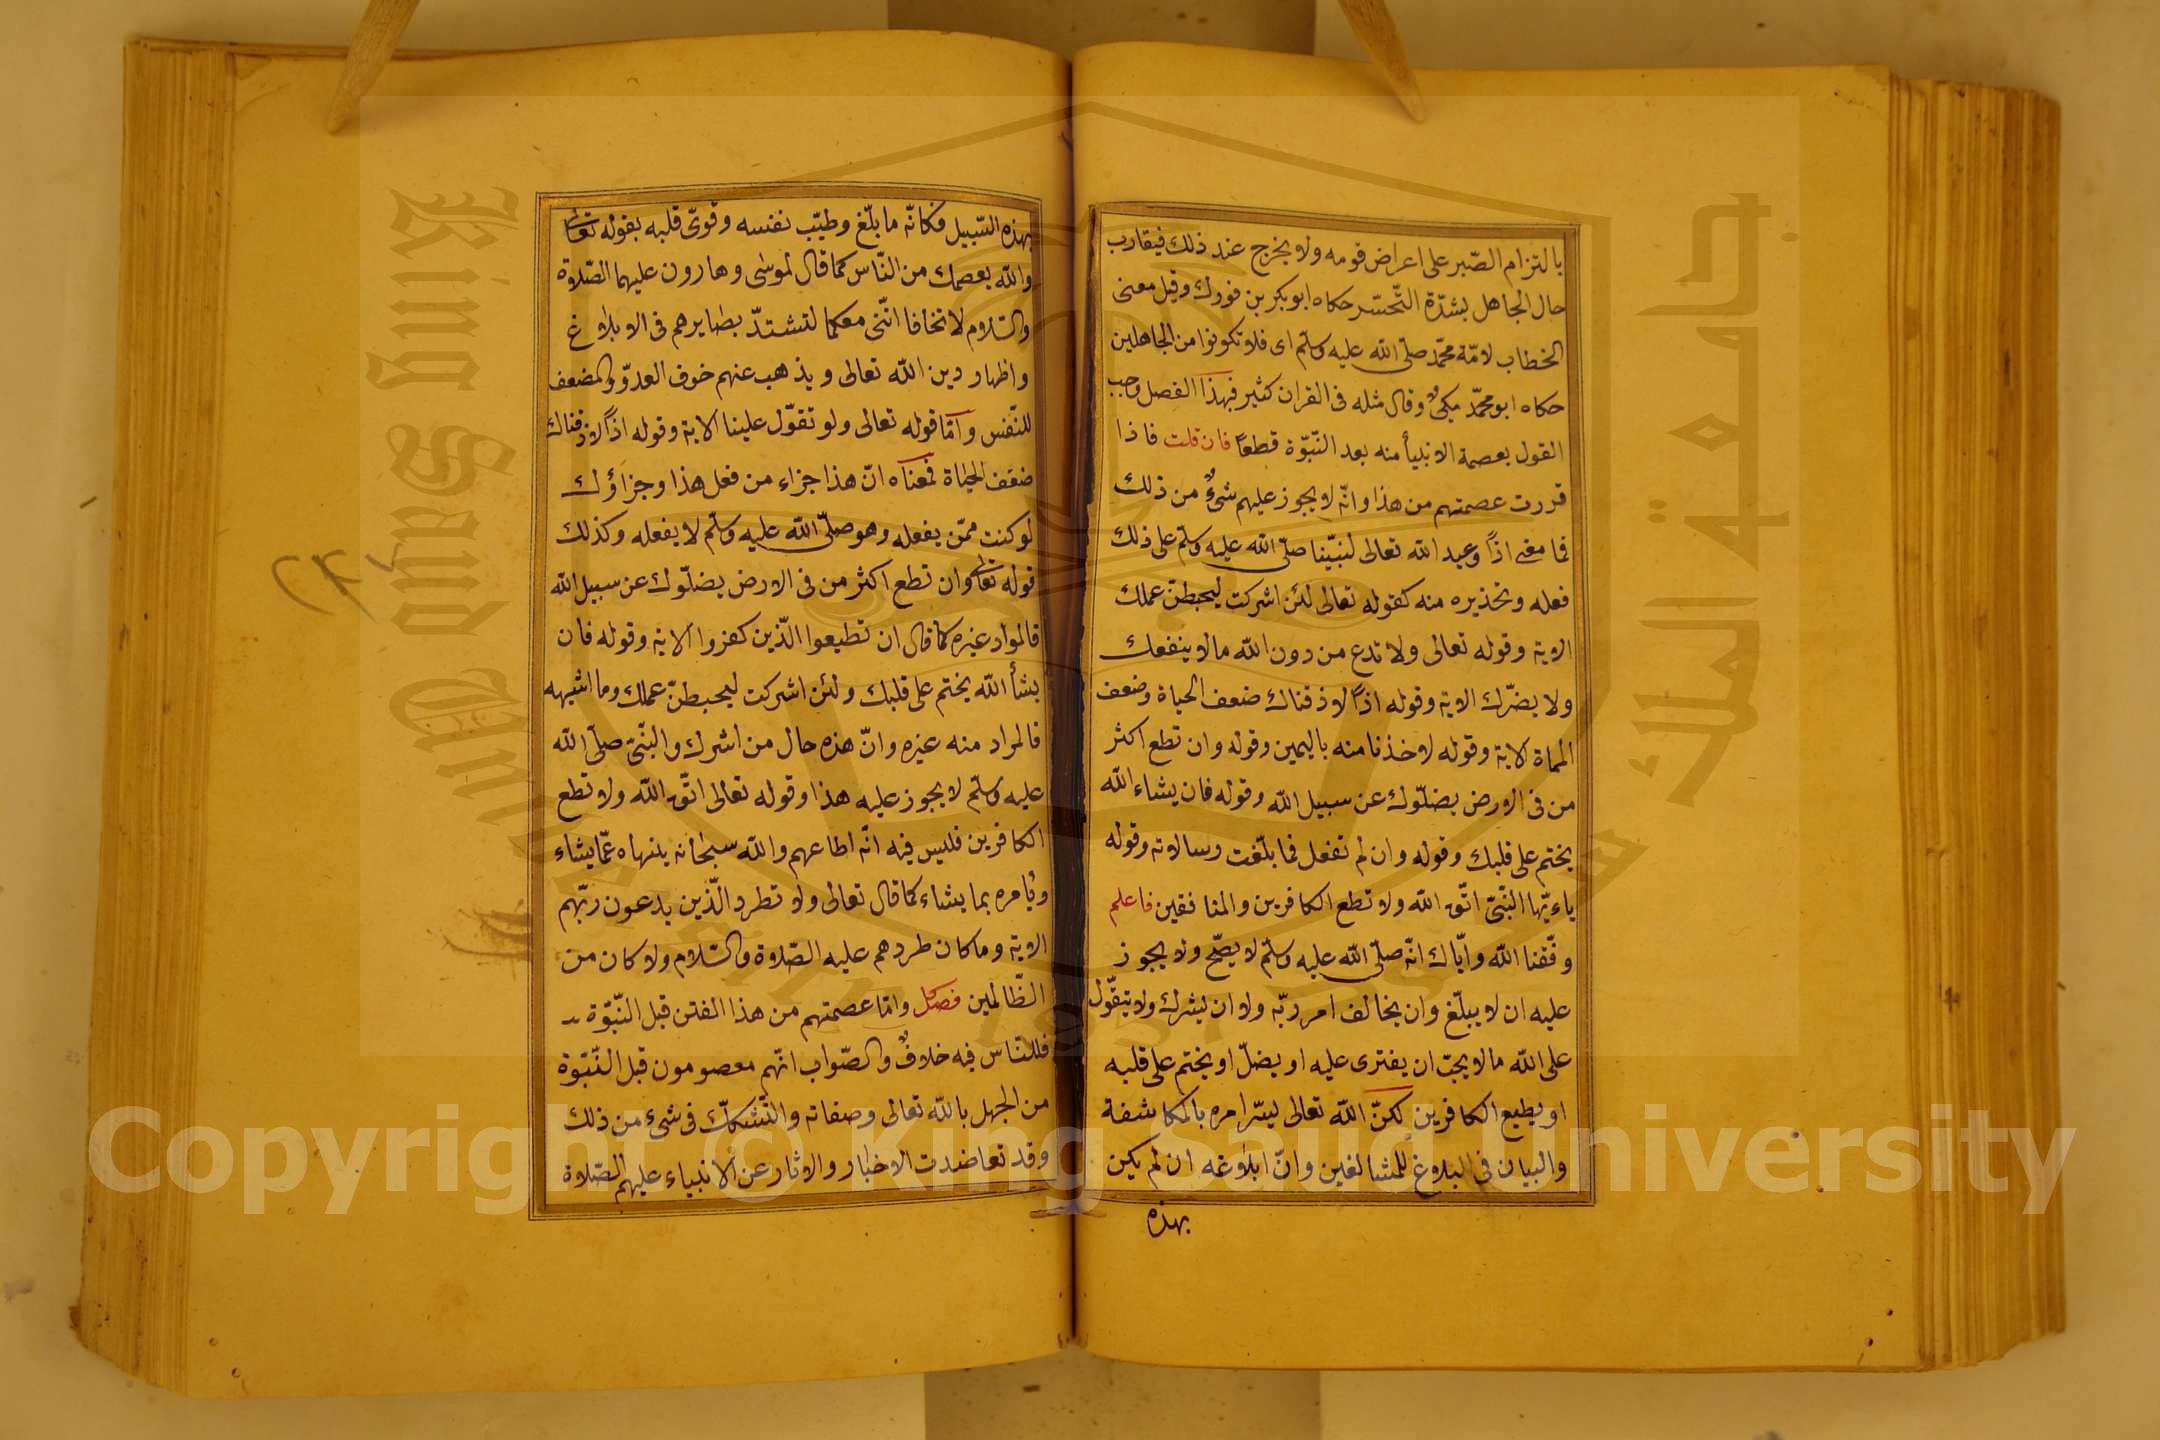 بالتزام الصّبر على اعراض قومه ولا يخرج عند ذلك فيقارب
حال الجاهل بشدّة التّحسّر حكاه ابو بكر بن فورك وقيل معنى
الخطاب لامّة محمّد صلّى الله عليه وسلّم اى فلا تكونوا من الجاهلين
حكاه ابو محمّد مكىّ وقال مثله فى القران كثير فبهذا الفصل وجب
القول بعصمة الانبياء منه بعد النّبوّة قطعاً فان قلت فاذا
قررت عصمتهم من هذا وانّه لا يجوز عليهم شىءٌ من ذلك
فما معنى اذاً وعيد الله تعالى لنبيّنا صلّى الله عليه وسلّم على ذلك
فعله وتحذيره منه كقوله تعالى لئن اشركت ليحبطنّ عملك
الاية وقوله تعالى ولا تدع من دون الله مالا ينفعك
ولا يضرّك الاية وقوله اذاً لاذقناك ضعف الحياة وضعف
المماة الاية وقوله لاخذنا منه باليمين وقوله وان تطع اكثر
من فى الارض يضلّوك عن سبيل الله وقوله فان يشاء الله
يختم على قلبك وقوله وان لم تفعل فما بلّغت رسالاته وقوله
ياءيّها النّبىّ اتّق الله ولا تطع الكافرين والمنافقين فاعلم
وفّقنا الله وايّاك انّه صلّى الله عليه وسلّم لا يصّح ولا يجوز
عليه ان لا يبلّغ وان يخالف امر ربّه ولا ان يشرك ولا يتقّول
على الله مالا يجبّ ان يفترى عليه او يضلّ او يختم على قلبه
او يطيع الكافرين لكنّ الله تعالى ليسّر امره بالمكاشفة
والبيان فى البلاغ للمشالفين وانّ ابلاغه ان لم يكن
بهذه
بهذه السّبيل فكانّه ما بلّغ وطيّب نفسه وقوّى قلبه بقوله تعالى
والله يعصمك من النّاس كما قال لموسٰى وهارون عليهما الصّلاة
والسّلام لا تخافا انّنى معكما لتشتدّ بصايرهم فى الابلاغ
واظهار دين الله تعالى ويذهب عنهم خوف العدوّ والمضعف
للنّفس وامّا قوله تعالى ولو تقوّل علينا الاية وقوله اذاً لاذقناك
ضعف الحياة فمعناه انّ هذا جزاء من فعل هذا وجزاؤك
لو كنت ممّن يفعله وهو صلّى الله عليه وسلّم لا يفعله وكذلك
قوله تعالى وان تطع اكثر من فى الارض يضلّوك عن سبيل الله
فالمواد غيره كما قال ان تطيعوا الّذين كفروا الاية وقوله فان
يشأ الله يختم على قلبك ولئن اشركت ليحبطنّ عملك وما اشبهه
فالمراد منه غيره وانّ هذه حال من اشرك والنّبىّ صلّى الله
عليه وسلّم لا يجوز عليه هذا وقوله تعالى اتّق الله ولا تطع
الكافرين فليس فيه انّه اطاعهم والله سبحانه ينهاه عمّا يشاء
ويامره بما يشاء كما قال تعالى ولا تطرد الّذين يدعون ربّهم
الاية وما كان طردهم عليه الصّلاة والسّلام ولا كان من
الظّالمين فصل وامّا عصمتهم من هذا الفتن قبل النّبوّة
فللنّاس فيه خلافٌ والصّواب انّهم معصومون قبل النّبوّة
من الجهل بالله تعالى وصفاته والتّشكّك فى شىء من ذلك
وقد تعاضدت الاخبار والاثار عن الانبياء عليهم الصّلاة
Copyright © King Saud University
King Saud University
جامعة الملك سعود
1957